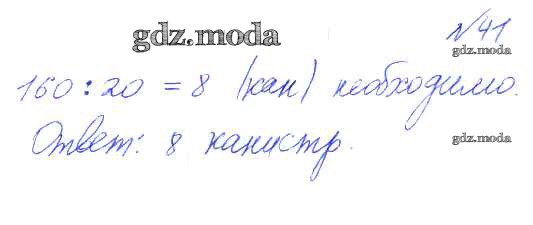 №41
gdz.moda
gdz.moda
160:20 = 8 (кан) необходимо.
Ответ: 8 канистр.
gdz.moda